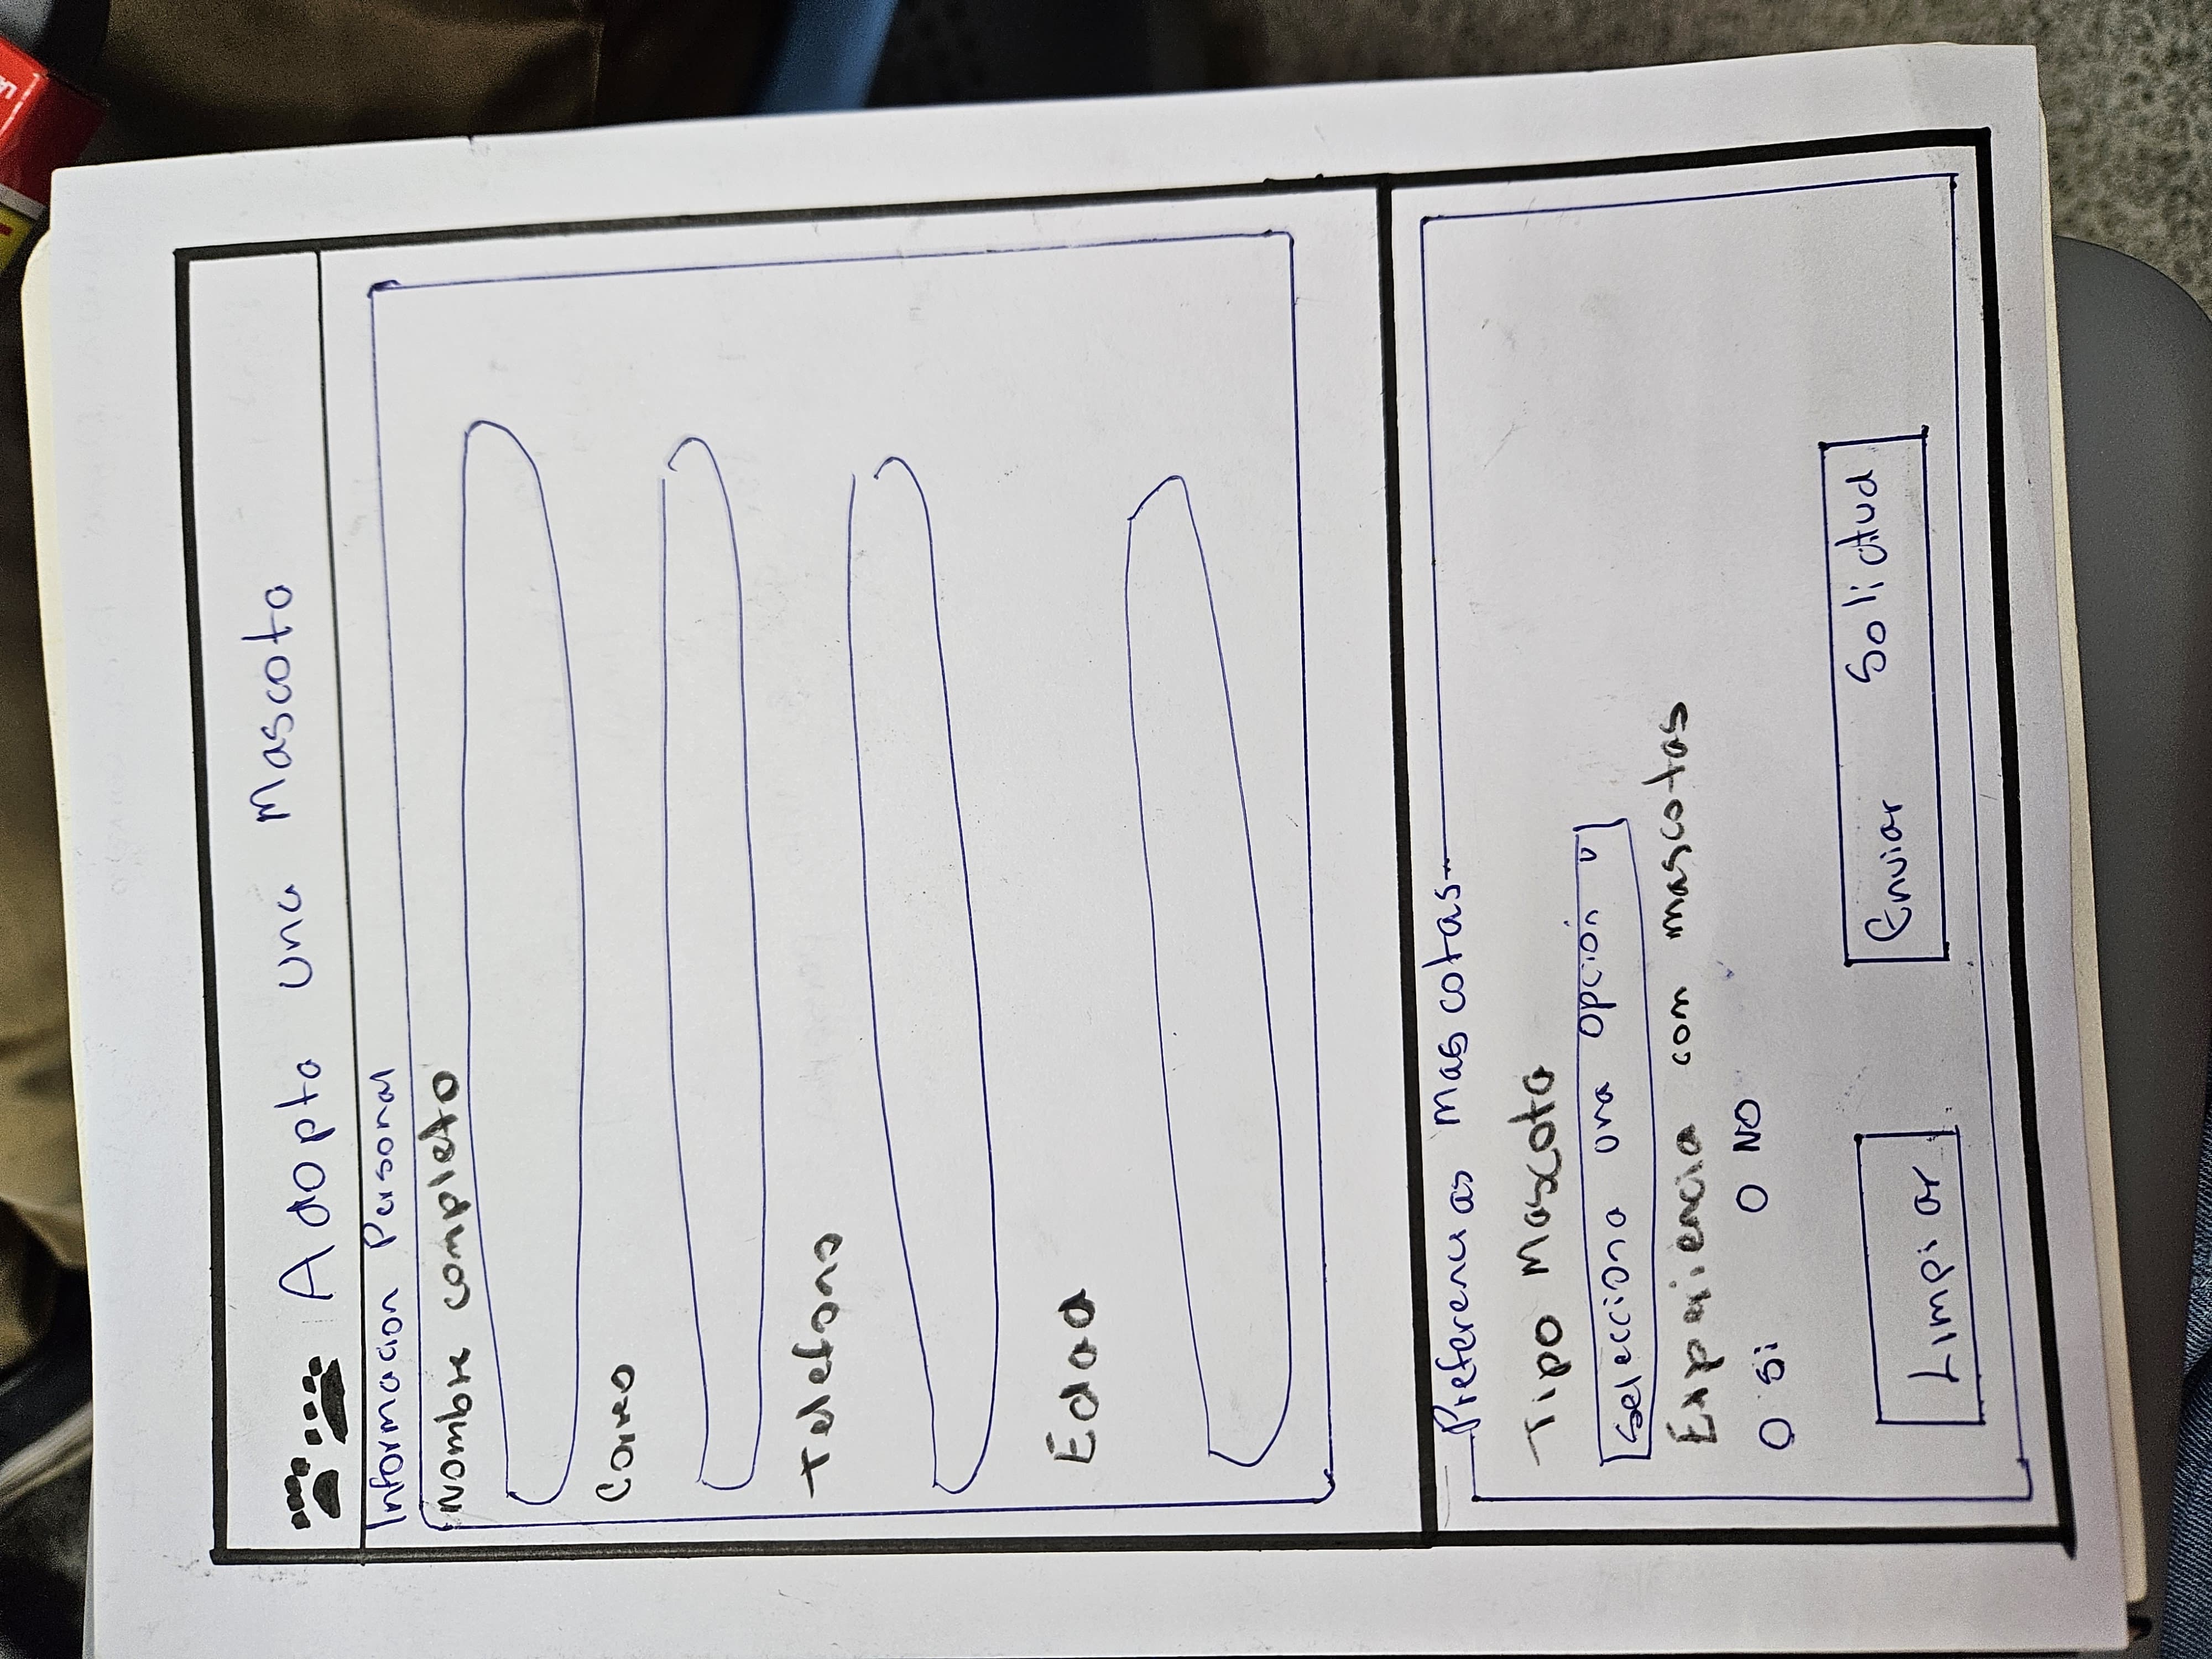 Adopta una Mascota
Informacion Personal
Nombre completo
Correo
Telefono
Edad
Preferencias mascotas
Tipo Mascota
Selecciona una opción
Experiencia com mascotas
O Si O NO
Limpiar Enviar Solicitud